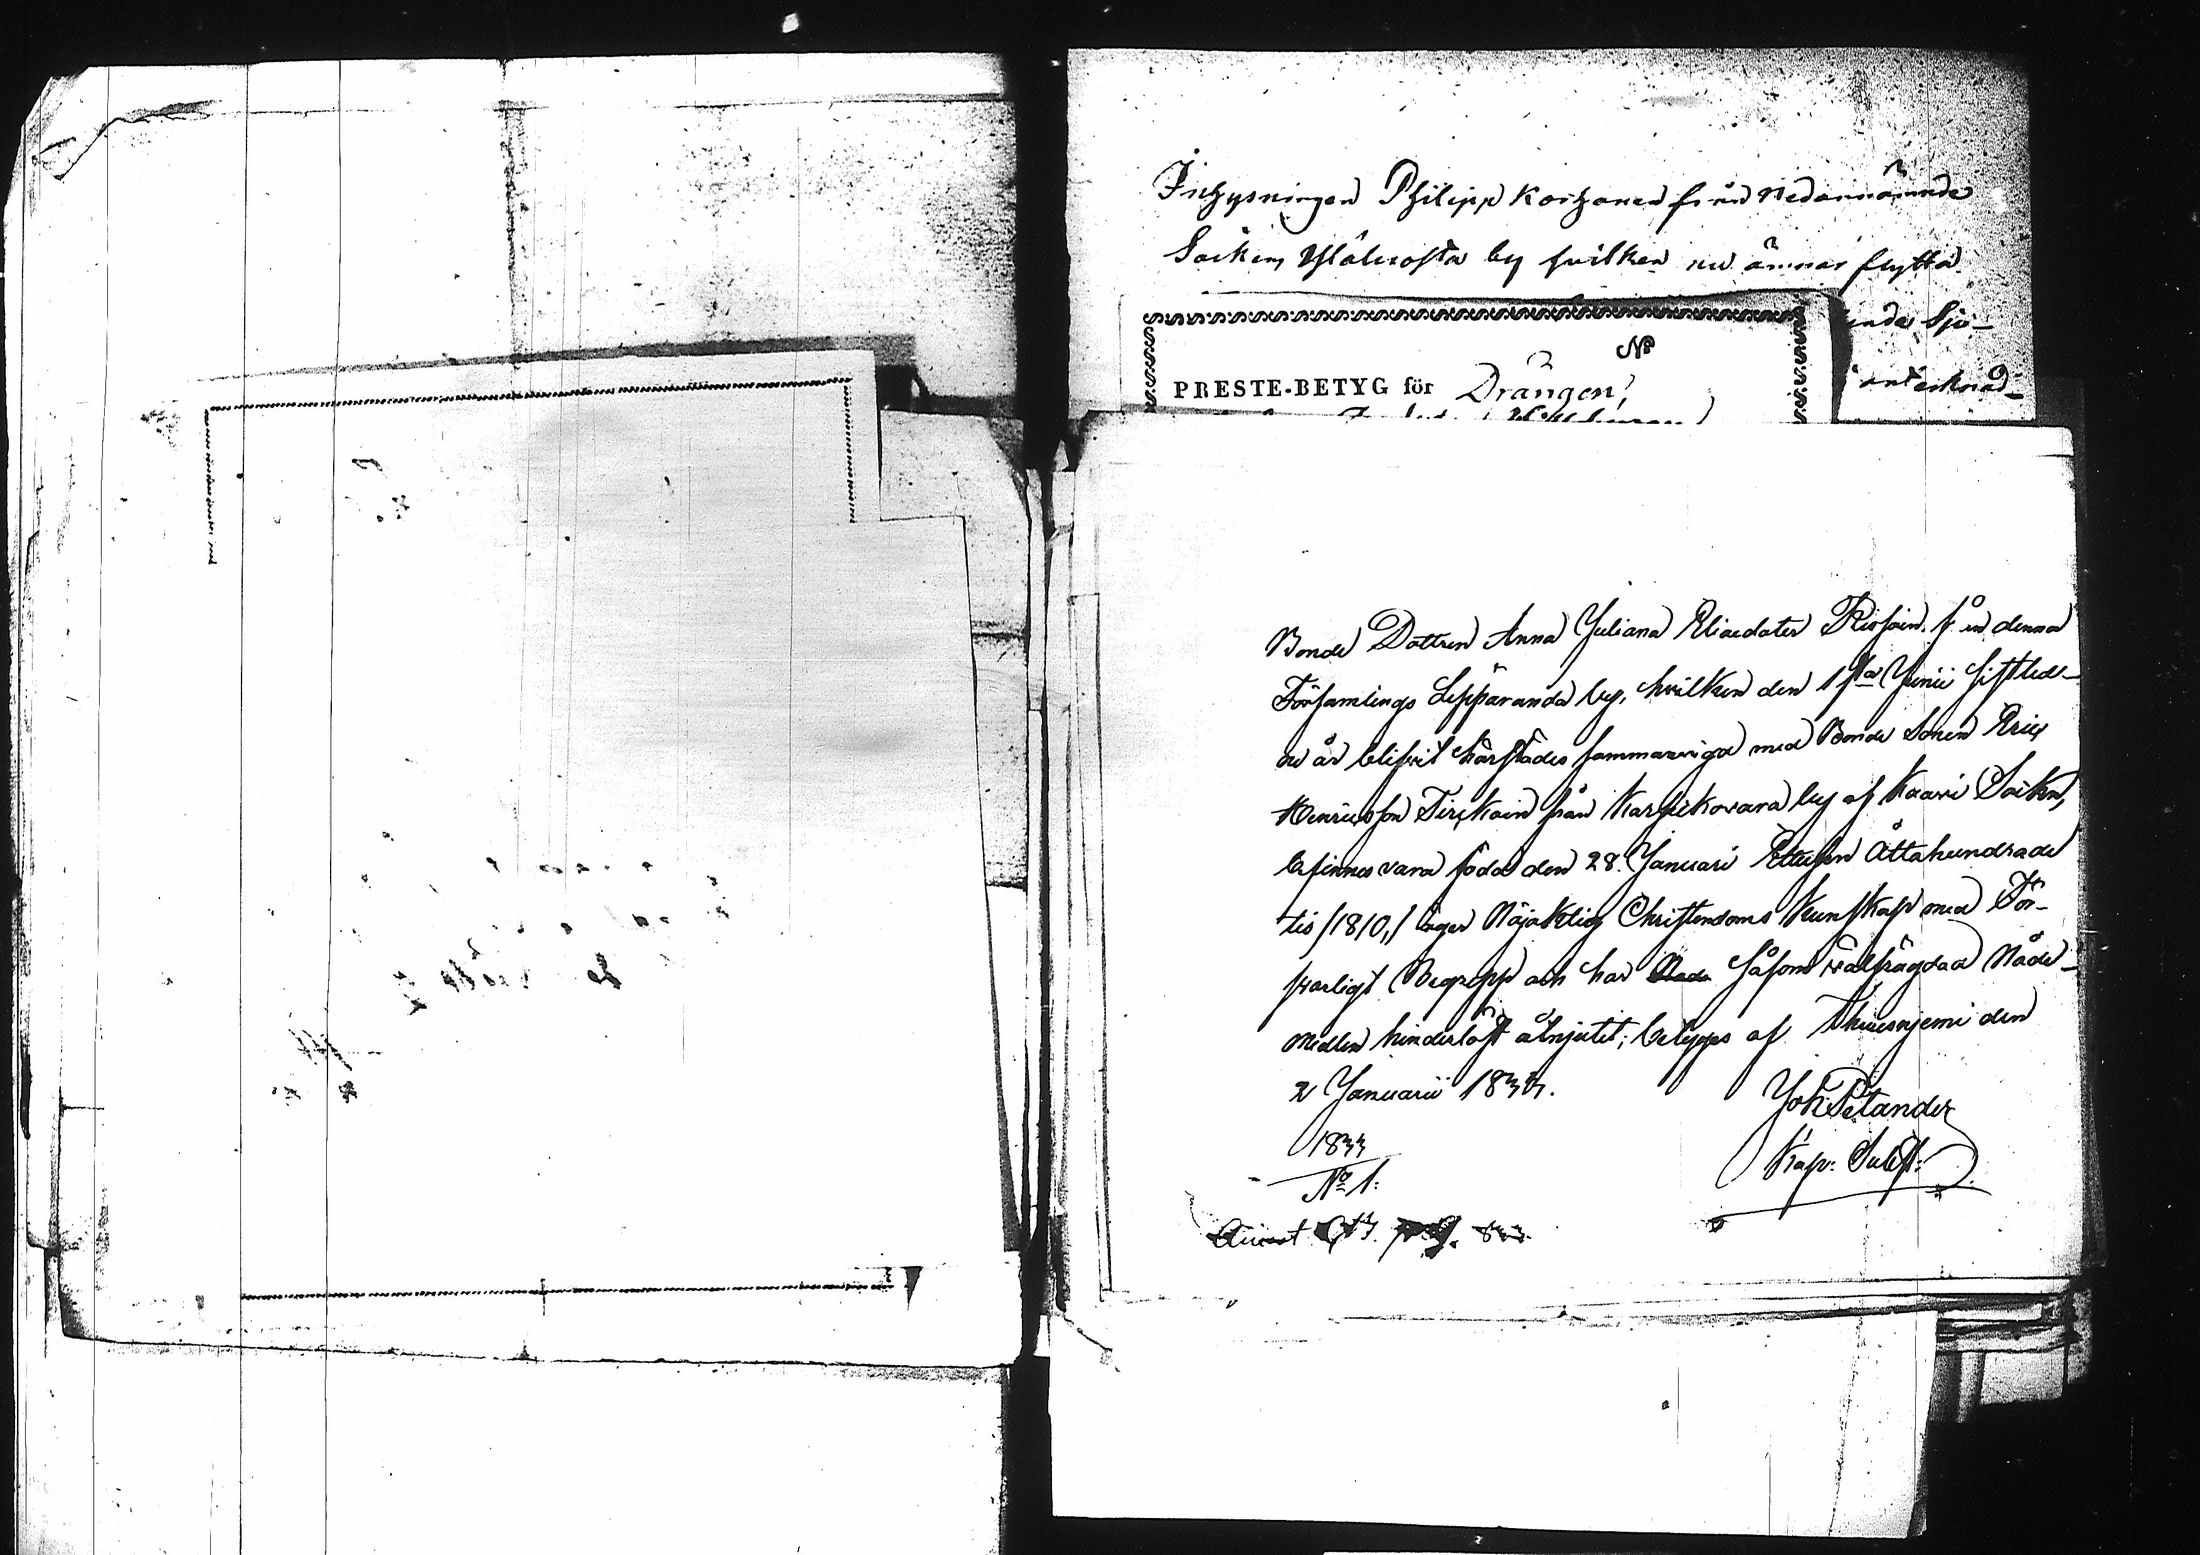 Inhysningen Philipp Korhonen från Nedannämnde
Socken, by hvilken nu ämnar flytta
unde Sju-
antecknad
No
PRESTE-BETYG för Drängen,
Bonde Dottren Anna Juliana Eliaedoter från denna
Församlings Leppäranda by, hvilken den 1sta Junii sistled-
ne år blifvit härstädes sammanvigd med Bonde Sonen Eric
Henricsson från by af Kaavi Socken,
befinnes vara född den 28. Januari Ettusen Åttahundrade
tio /1810,/ äger Nöjaktig Christendoms Kunskap med För-
svarligt Begrepp och har såsom välfrägdad Nåde-
medlen hinderlöst åtnjutit; betygas af den
2 Januarii 1833.
Joh: Petander
Kap: Subst:
1833
No 1.